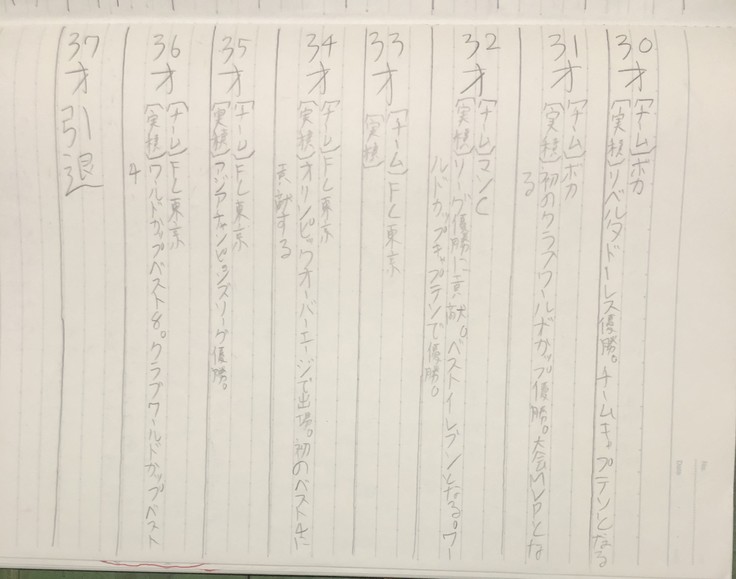 30才
【チーム】ボカ
【実積】リベルタドーレス優勝。チームキャプテンとなる
31才
【チーム】ボカ
【実積】初のクラブワールドカップ優勝。大会MVPとな
る
32才
【チーム】マンC
【実積】リーグ優勝に貢献。ベストイレブンとなる。ワー
ルドカップキャプテンで優勝。
33才
【チーム】FC東京
【実積】
34才
【チーム】FC東京
【実積】オリンピックオーバーエージで出場。初のベスト4に
貢献する
35才
【チーム】FC東京
【実積】アジアチャンピョンズリーグ優勝。
36才
【チーム】FC東京
【実積】ワールドカップベスト8。クラブワールドカップベスト
4
37才 引退